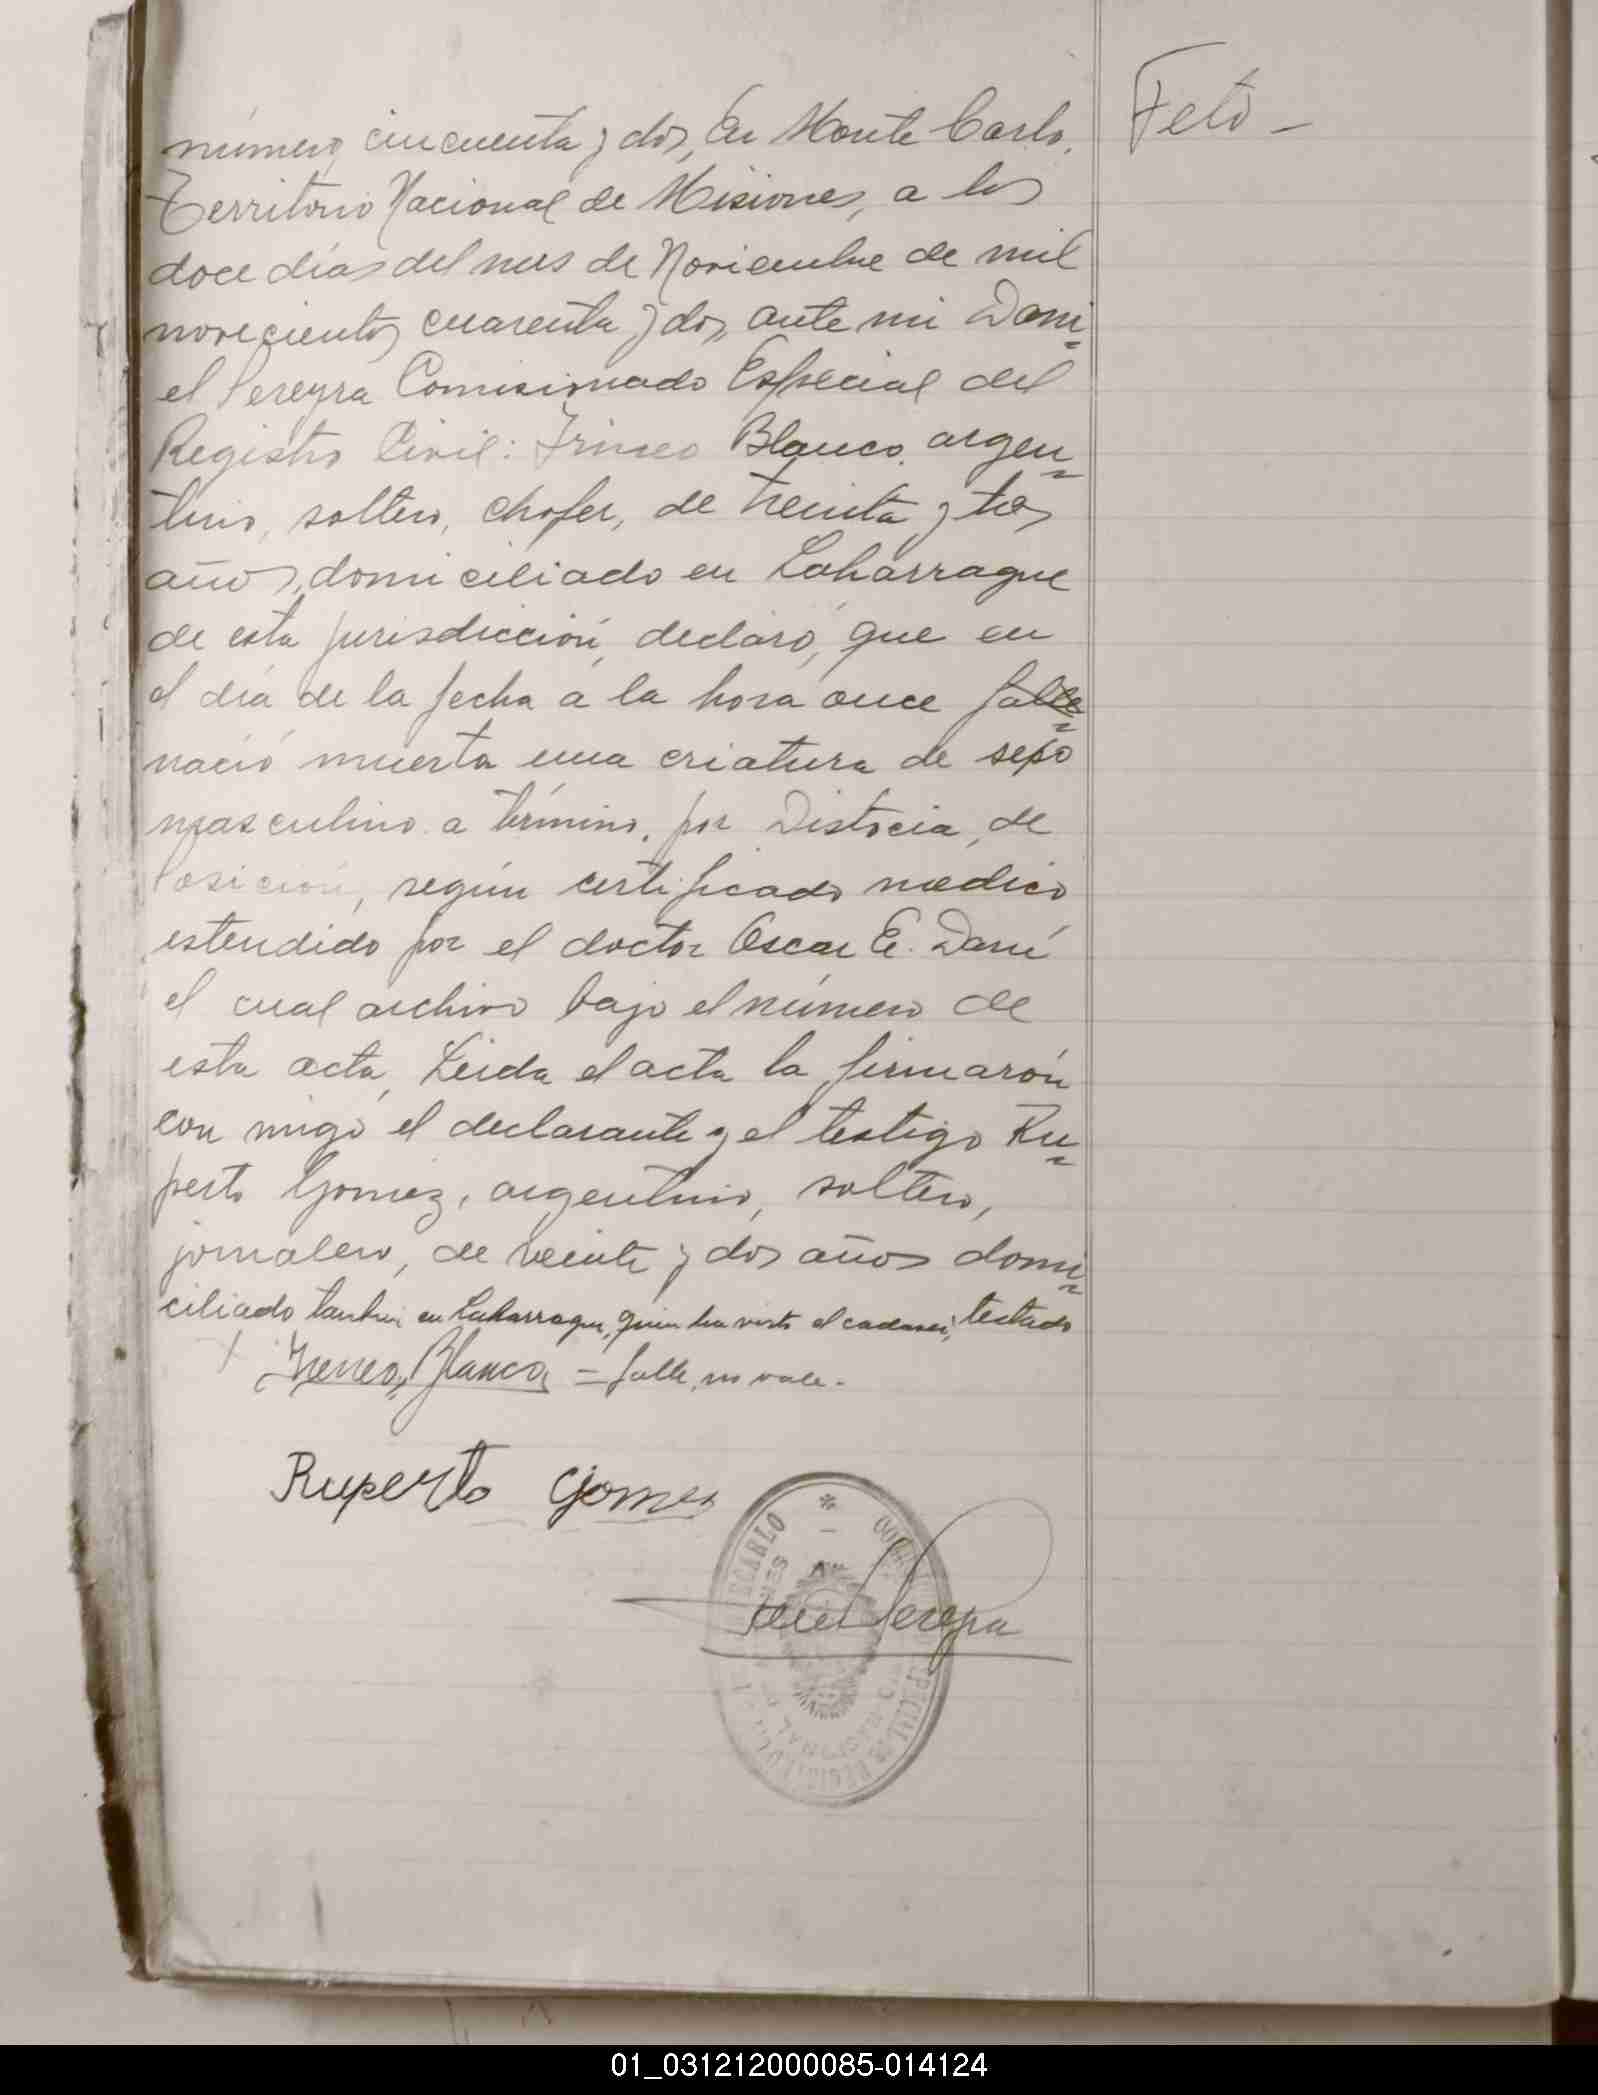 Feto -
número cincuenta y dos, En Monte Carlo,
Territorio Nacional de Misiones, a los
doce días del mes de Noviembre de mil
novecientos cuarenta y dos, ante mi Dani-
el Pereyra Comisionado Especial del
Registro Civil: Irineo Blanco, argen-
tino, soltero, chofer, de treinta y tres
años, domiciliado en Laharrague
de esta jurisdicción, declaró, que en
el día de la fecha a la hora once falle-
nació muerta una criatura de sexo
masculino a término, por Distocia, de
Posición, según certificado medico
estendido por el doctor Oscar E. Darú
el cual archivo bajo el número de
esta acta, Leida el acta la firmarón
con migo el declarante y el testigo Ru-
perto Gomez, argentino, soltero,
jornalero, de veinte y dos años domi-
ciliado tambien en Laharrague, quien ha visto el cadaver, testado
Ireneo Blanco = falle, no vale.-
Ruperto Gomes
Pereyra
01_031212000085-014124